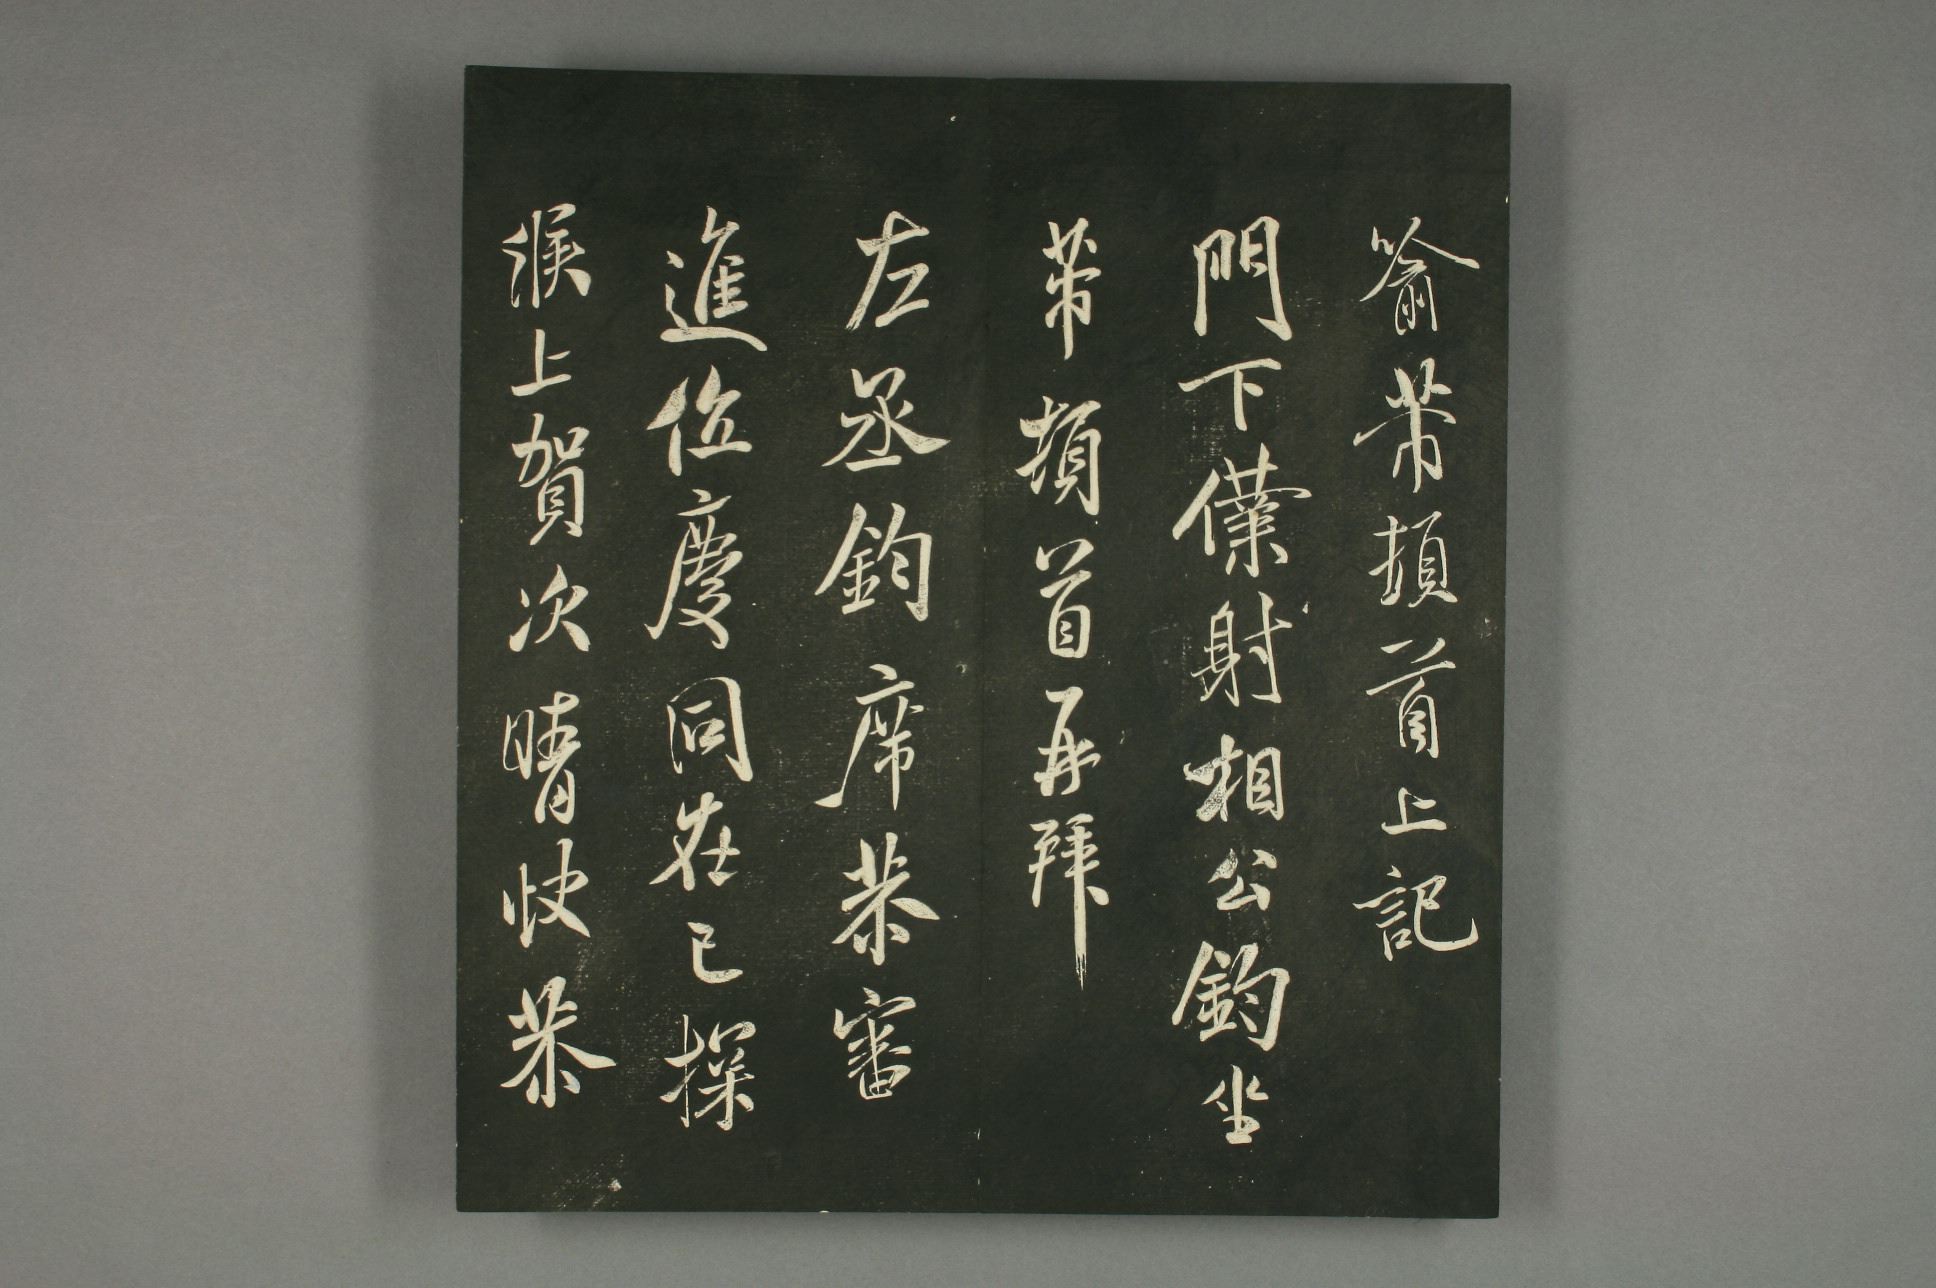 喻芾頓首上記
門下僕射相公鈞坐
芾頓首再拜
左丞鈞席恭審
進位慶同在已探
候上賀次晴快恭